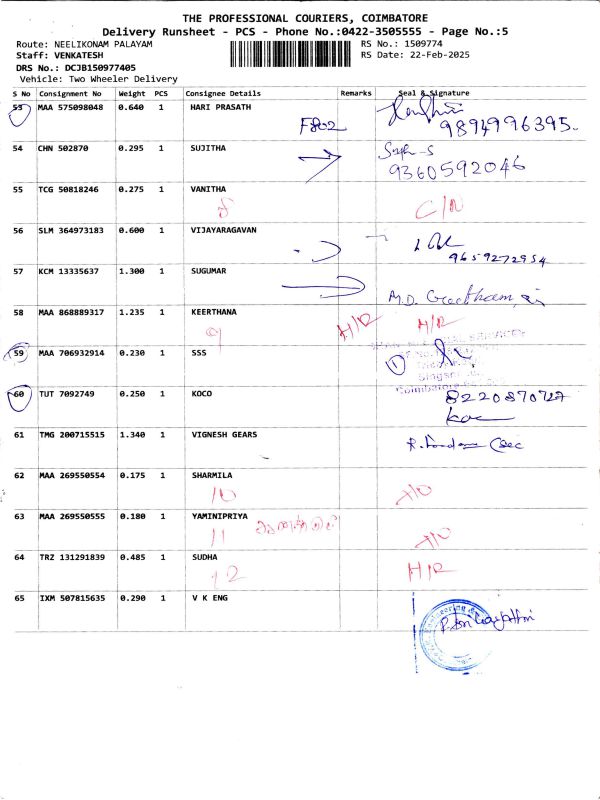 THE PROFESSIONAL COURIERS, COIMBATORE
Delivery Runsheet - PCS - Phone No.:0422-3505555 - Page No.:5
Route: NEELIKONAM PALAYAM
RS No.: 1509774
Staff: VENKATESH
RS Date: 22-Feb-2025
DRS No.: DCJB150977405
Vehicle: Two Wheeler Delivery
S No Consignment No Weight PCS Consignee Details Remarks Seal & Signature
53 MAA 575098048 0.640 1 HARI PRASATH
F802
9894996395
54 CHN 502870 0.295 1 SUJITHA
9360592046
55 TCG 50818246 0.275 1 VANITHA
8 C/N
56 SLM 364973183 0.600 1 VIJAYARAGAVAN
9659272954
57 KCM 13335637 1.300 1 SUGUMAR
M.D.
58 MAA 868889317 1.235 1 KEERTHANA
9 H/R H/R
59 MAA 706932914 0.230 1 SSS
1
60 TUT 7092749 0.250 1 KOCO
8220870727
61 TMG 200715515 1.340 1 VIGNESH GEARS
62 MAA 269550554 0.175 1 SHARMILA
10
63 MAA 269550555 0.180 1 YAMINIPRIYA
11
64 TRZ 131291839 0.485 1 SUDHA
12 H/R
65 IXM 507815635 0.290 1 V K ENG